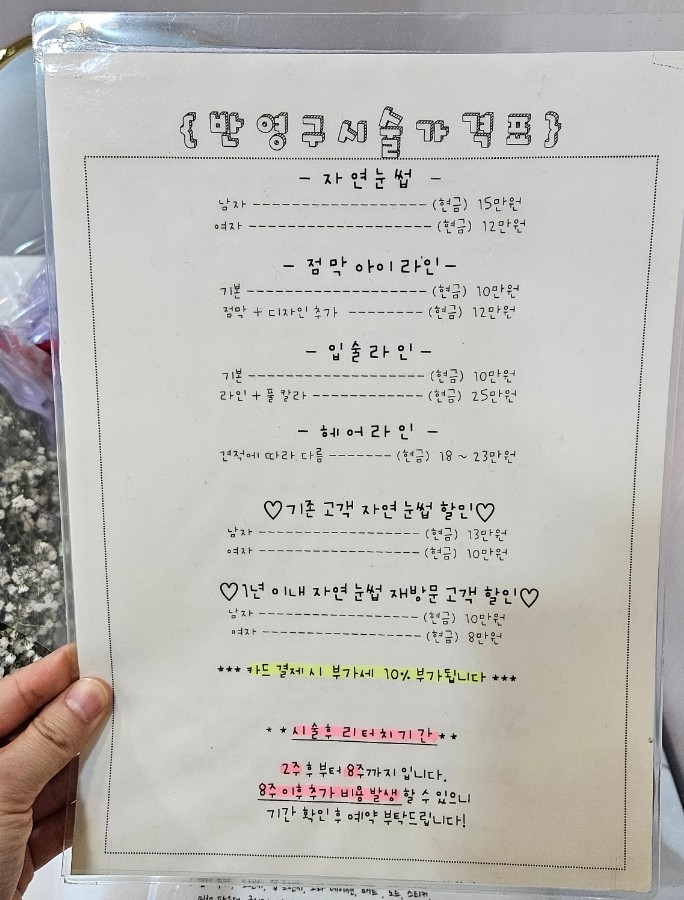 {반영구시술가격표}
- 자연눈썹 -
남자 ------------------ (현금) 15만원
여자 ------------------- (현금) 12만원
- 점막 아이라인 -
기본 ------------------- (현금) 10만원
점막 + 디자인 추가 -------- (현금) 12만원
- 입술라인 -
기본 ------------------- (현금) 10만원
라인 + 풀칼라 ------------ (현금) 25만원
- 헤어라인 -
견적에 따라 다름 ------- (현금) 18 ~ 23만원
♡기존 고객 자연 눈썹 할인♡
남자 ----------------- (현금) 13만원
여자 ----------------- (현금) 10만원
♡1년 이내 자연 눈썹 재방문 고객 할인♡
남자 ----------------- (현금) 10만원
여자 ----------------- (현금) 8만원
*** 카드 결제 시 부가세 10% 부가됩니다 ***
* * 시술후 리터치기간 * *
2주 후 부터 8주까지 입니다.
8주 이후 추가 비용 발생 할 수 있으니
기간 확인 후 예약 부탁드립니다!